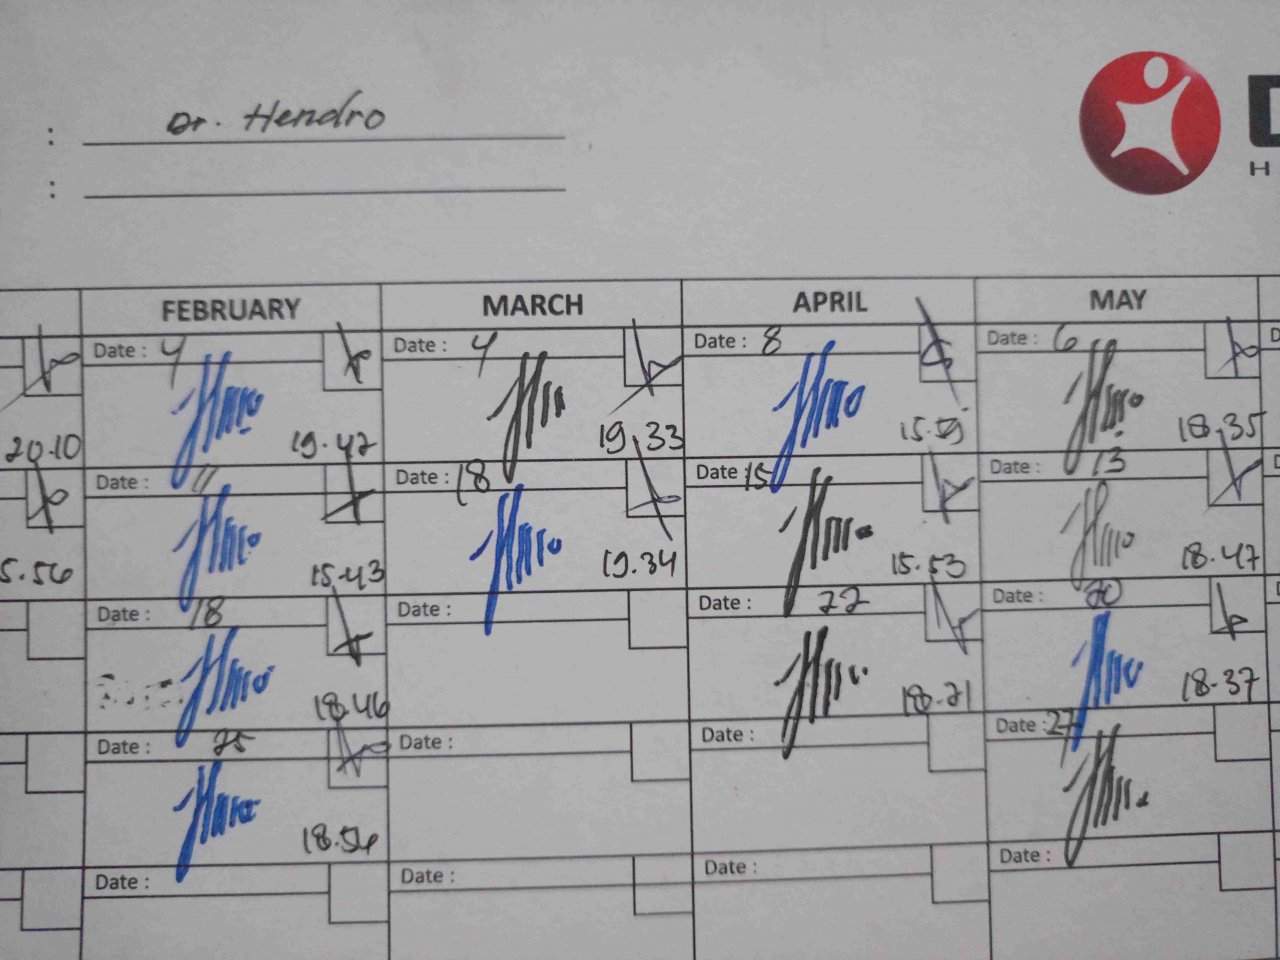 : Dr. Hendro
:
D
H
FEBRUARY MARCH APRIL MAY
Date : 4 Date : 4 Date : 8 Date : 6 D
20.10 19.47 19.33 15.59 18.35
Date : 11 Date : 18 Date : 15 Date : 13 D
5.56 15.43 19.34 15.53 18.47
Date : 18 Date : Date : 22 Date : 20 D
18.46 18.21 18.37
Date : 25 Date : Date : Date : 27
18.54
Date : Date : Date : Date :